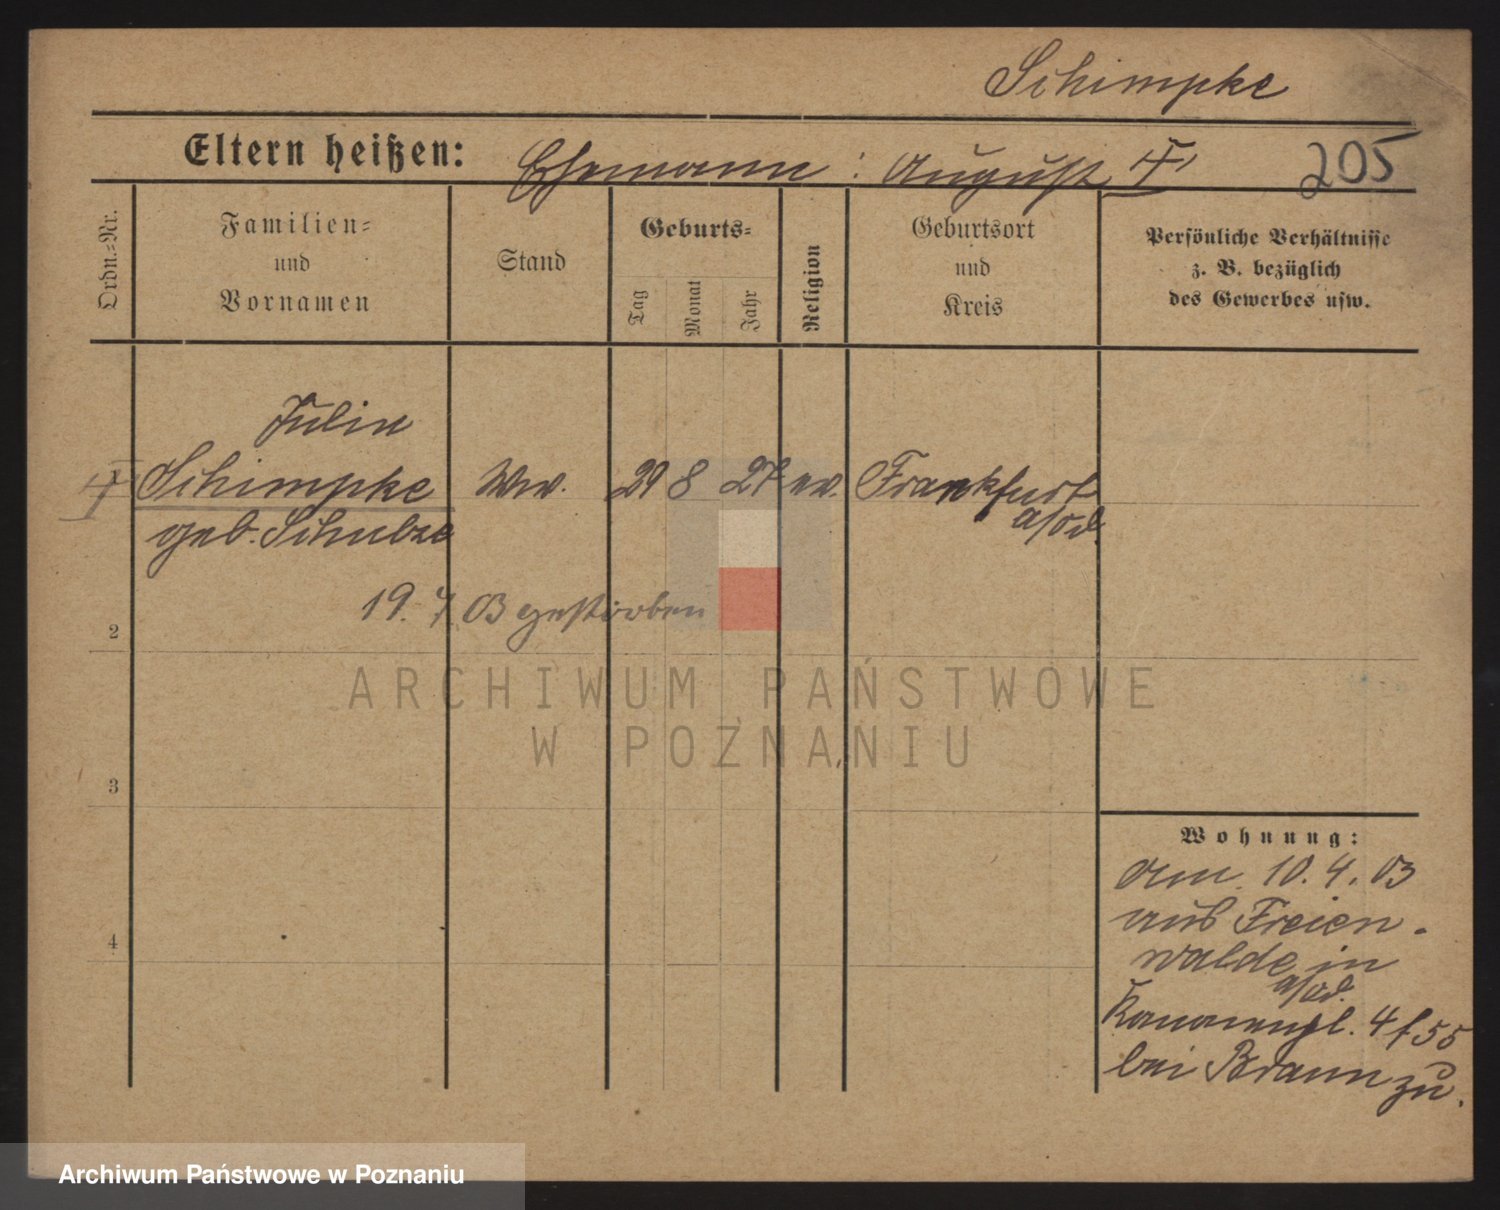 Schimpke
Eltern heißen: Ehemann: August † 205
Ordn.-Nr.
Familien-
und
Vornamen
Stand
Geburts-
Tag
Monat
Jahr
Religion
Geburtsort
und
Kreis
Persönliche Verhältnisse
z. B. bezüglich
des Gewerbes usw.
Julie
1 Schimpke Ww. 29 8 27 ev. Frankfurt
geb. Schulze a/od.
19. 7. 03 gestorben
2
3
4
Wohnung:
am 10. 4. 03
aus Freien-
walde in
a/od.
4 f 55
bei Braun zu.
ARCHIWUM PAŃSTWOWE
W POZNANIU
Archiwum Państwowe w Poznaniu